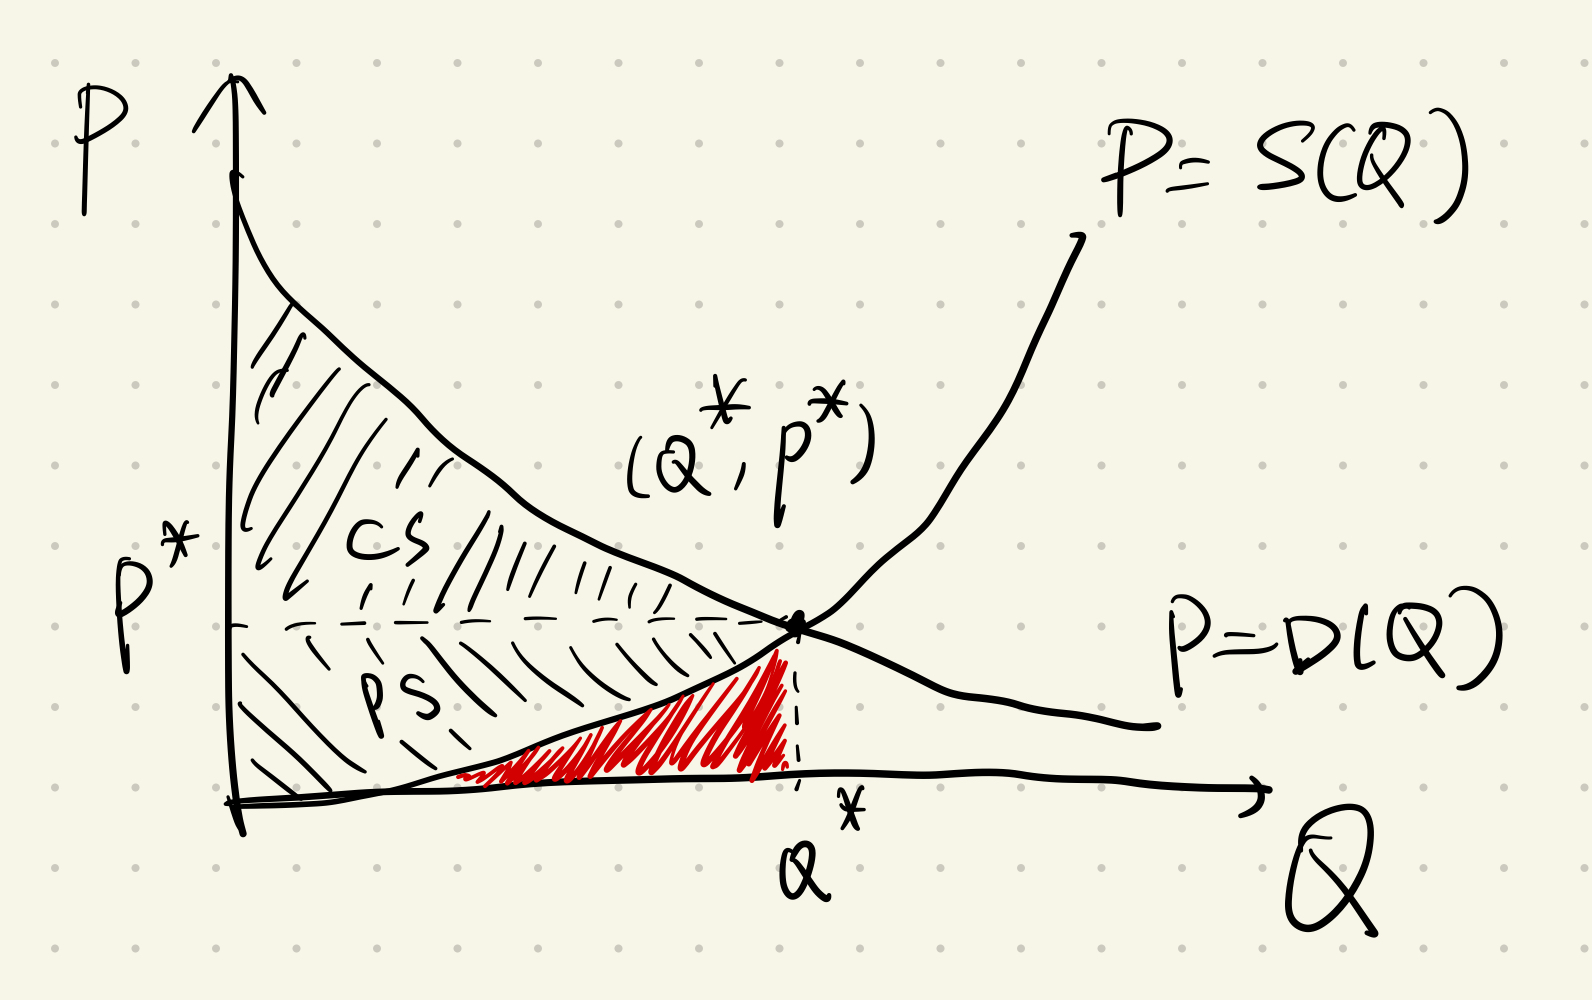 P
P = S(Q)
(Q*, P*)
CS
P*
P = D(Q)
PS
Q*
Q